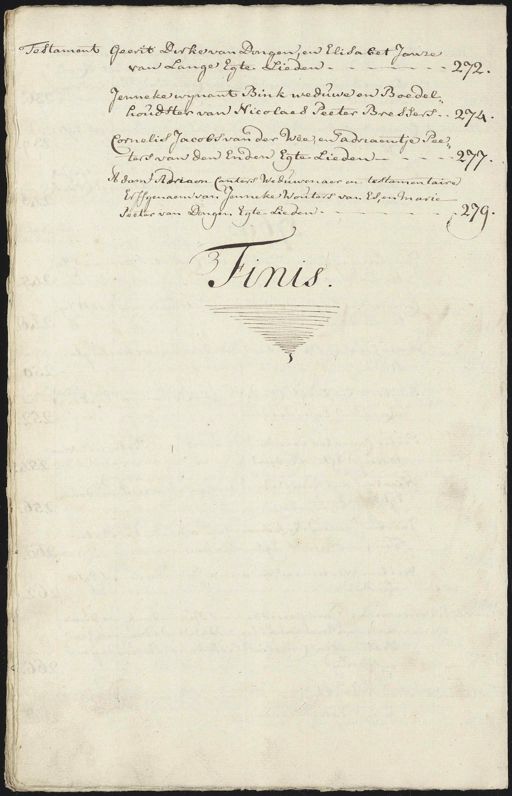 Testament Geerit Dirke van Dongen, en Elisabet Janse
van Lange Egte Lieden - - - - - - - - 272.
Jenneke wynant Bink weduwe en Boedel-
houdster van Nicolaes Peeter Bressers - - 274.
Cornelis Jacobs van der Wee, en adriaentje Pee-
ters van den Enden Egte Lieden - - - - - 277.
Adam Adriaen Canters Weduwenaer en testamentaire
Erffgenaem van Jenneke Wouters van Es, en Marie
Peeter van Dongen Egte Lieden - - - - - - - - 279.
Finis.